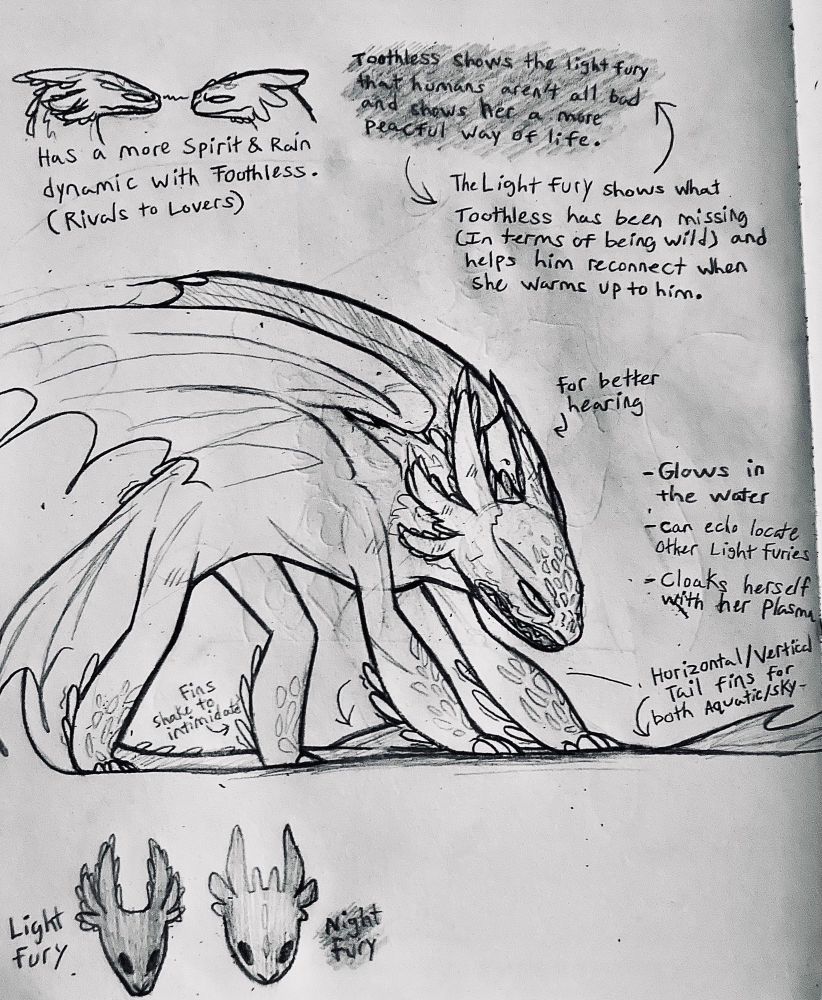 Toothless shows the light fury
that humans aren't all bad
and shows her a more
peacful way of life.
Has a more Spirit & Rain
dynamic with Toothless.
(Rivals to Lovers)
The Light fury shows what
Toothless has been missing
(In terms of being wild) and
helps him reconnect when
she warms up to him.
for better
hearing
- Glows in
the water
- can eclo locate
other Light Furies
- Cloaks herself
with her plasma
Horizontal/Vertical
Tail fins for
both Aquatic/sky
Fins
shake to
intimidate
Light
fury.
Night
Fury